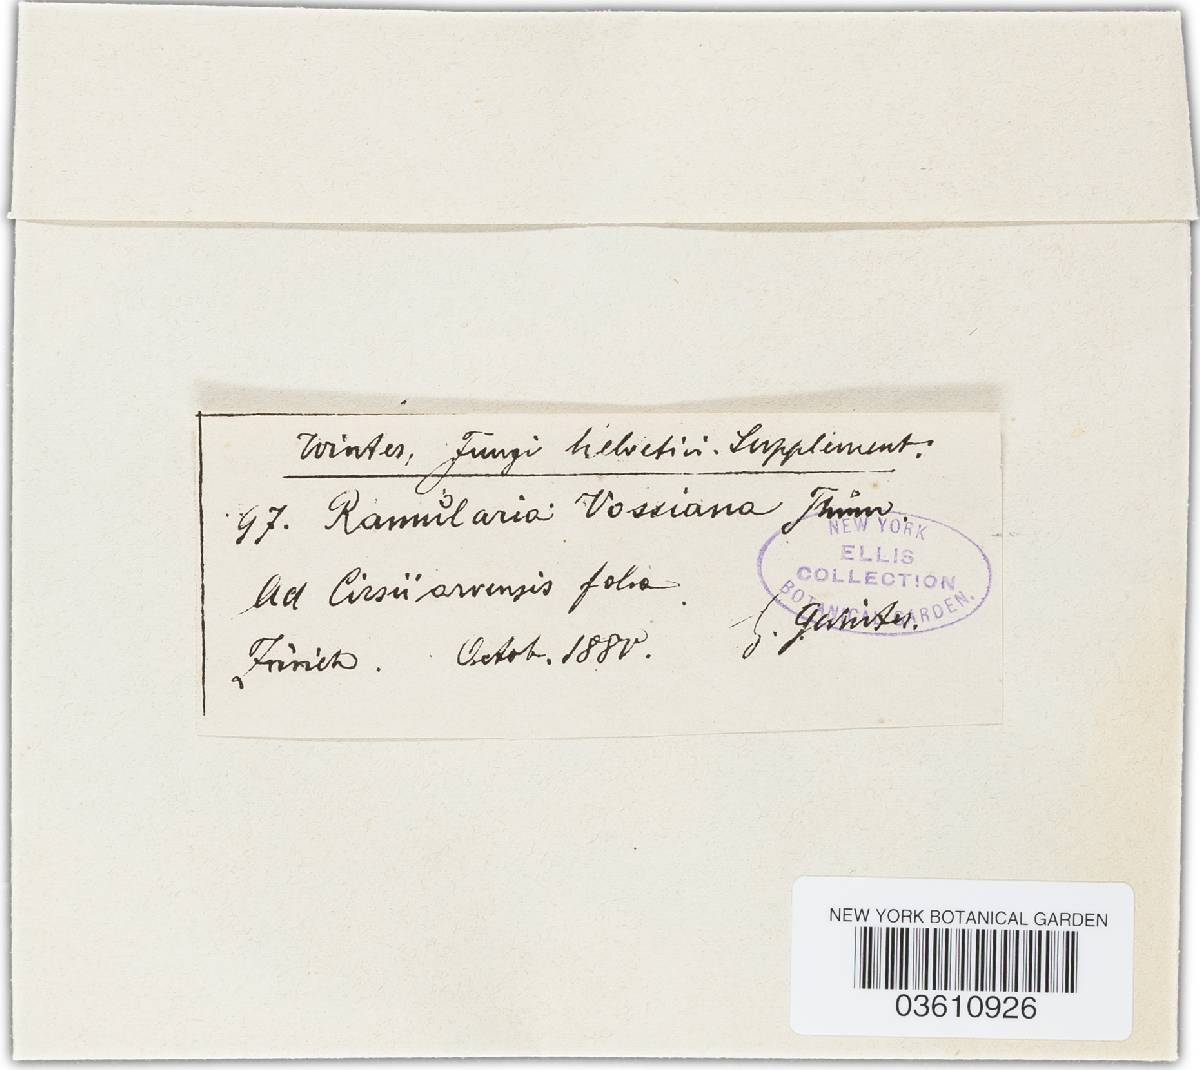 Winter, Fungi helvetici. Supplement.
97. Ramularia Vossiana Thüm.
Ad Cirsii arvensis folia.
Zürich. Octob. 1880. G. Winter.
NEW YORK
ELLIS
COLLECTION
BOTANICAL GARDEN.
NEW YORK BOTANICAL GARDEN
03610926